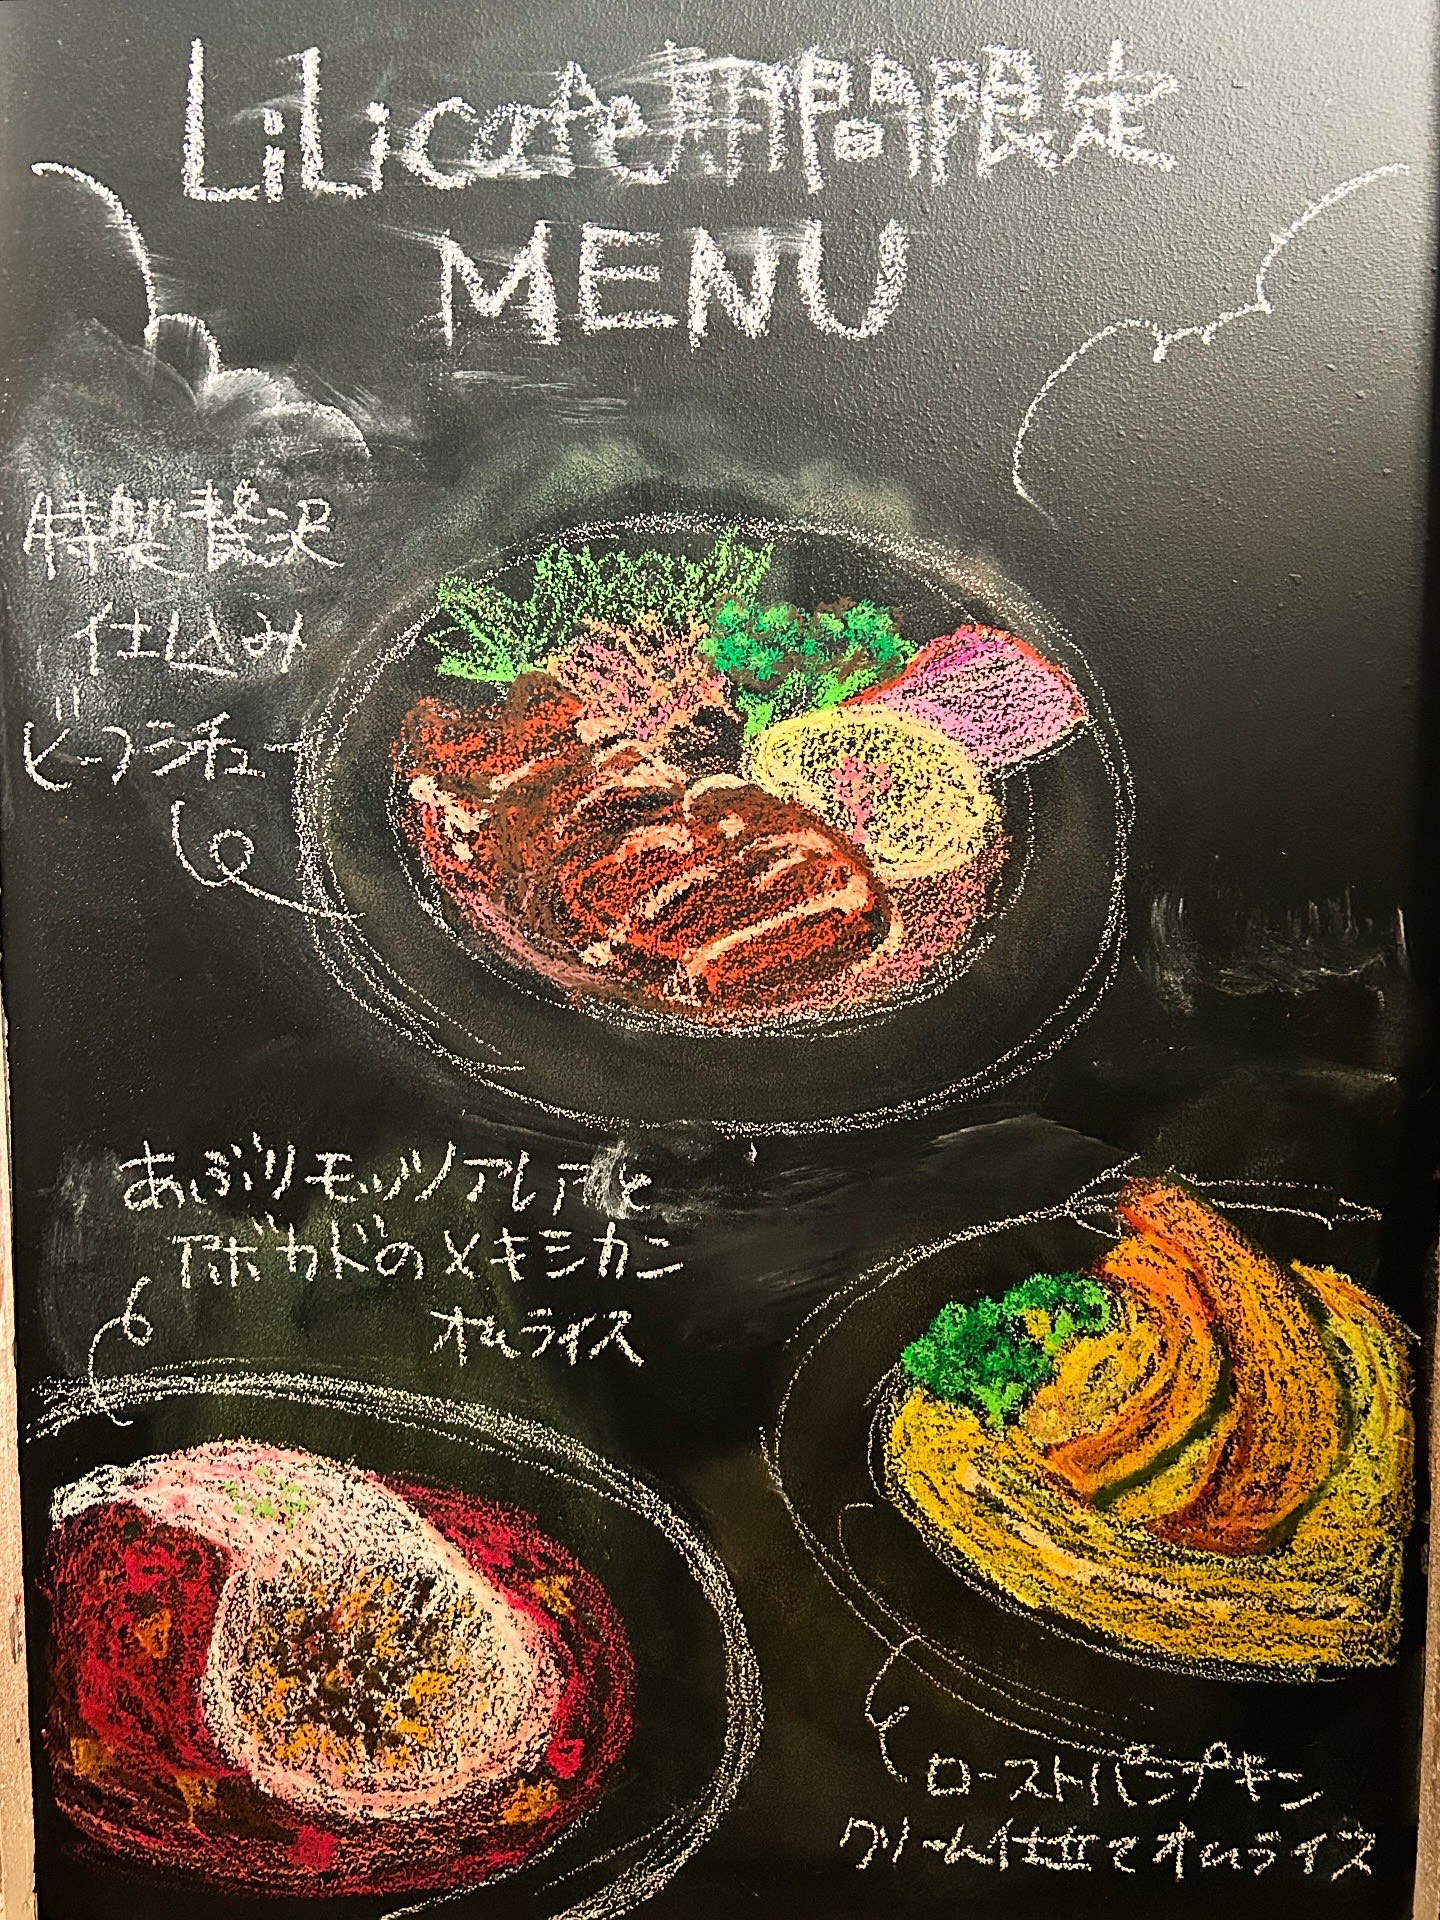 LiLicafe期間限定
MENU
特製贅沢
仕込み
ビーフシチュー
あぶりモッツアレアと
アボカドのメキシカン
オムライス
ローストパンプキン
クリーム仕立てオムライス